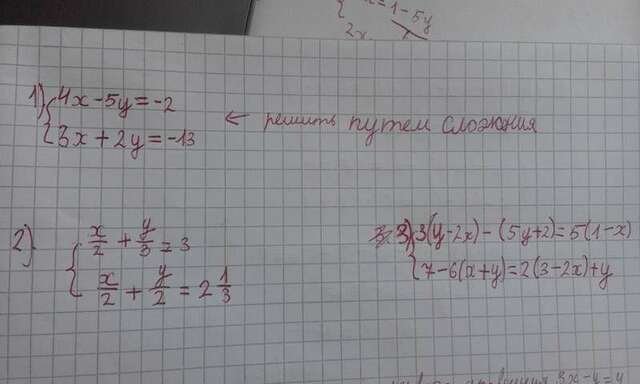 = 1 - 5y
2x
1) { 4x - 5y = -2
{ 3x + 2y = -13
← решить путем сложния
2) { x/2 + y/3 = 3
{ x/2 + y/2 = 2 1/3
3) 3(y-2x) - (5y+2) = 5(1-x)
{ 7 - 6(x+y) = 2(3-2x) + y
3x - y = 4